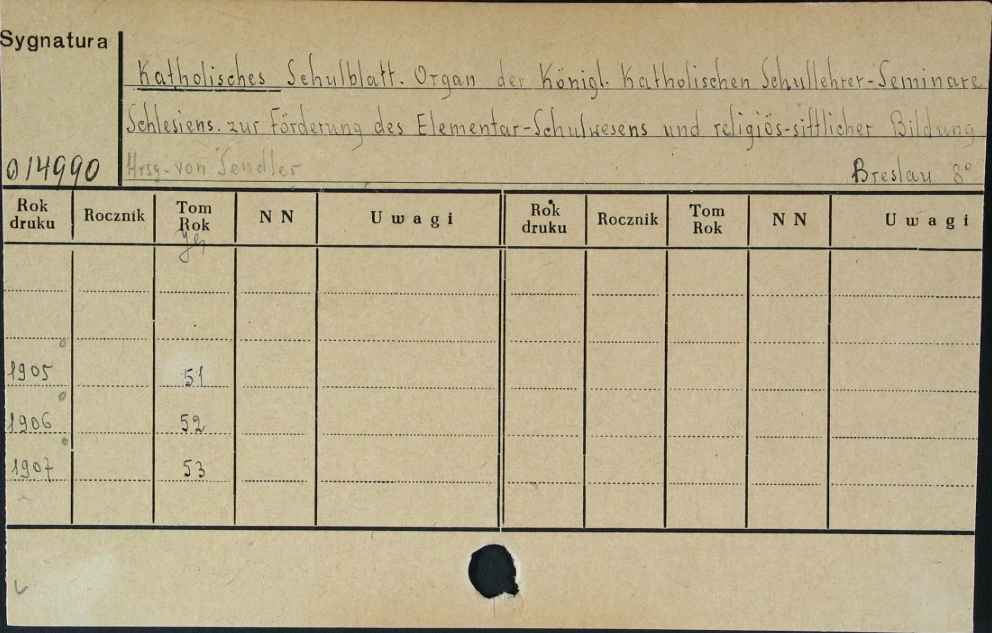 Sygnatura
Katholisches Schulblatt. Organ der Königl. Katholischen Schullehrer-Seminare
Schlesiens. zur Förderung des Elementar-Schulwesens und religiös-sittlicher Bildung
014990 Hrsg. von Sendler Breslau 8°
Rok druku Rocznik Tom Rok NN Uwagi Rok druku Rocznik Tom Rok NN Uwagi
Jg
1905 51
1906 52
1907 53